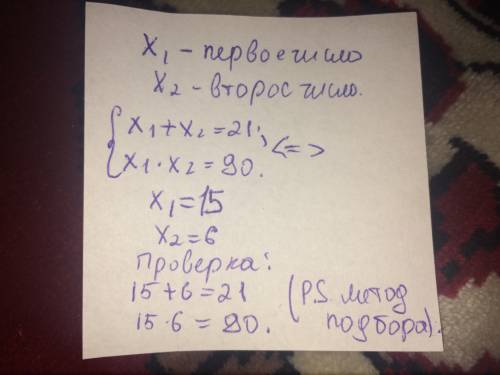 x₁ – первое число
x₂ – второе число.
{ x₁ + x₂ = 21;
x₁ · x₂ = 90. <=>
x₁ = 15
x₂ = 6
Проверка:
15 + 6 = 21
15 · 6 = 90.
(P.S. метод
подбора).